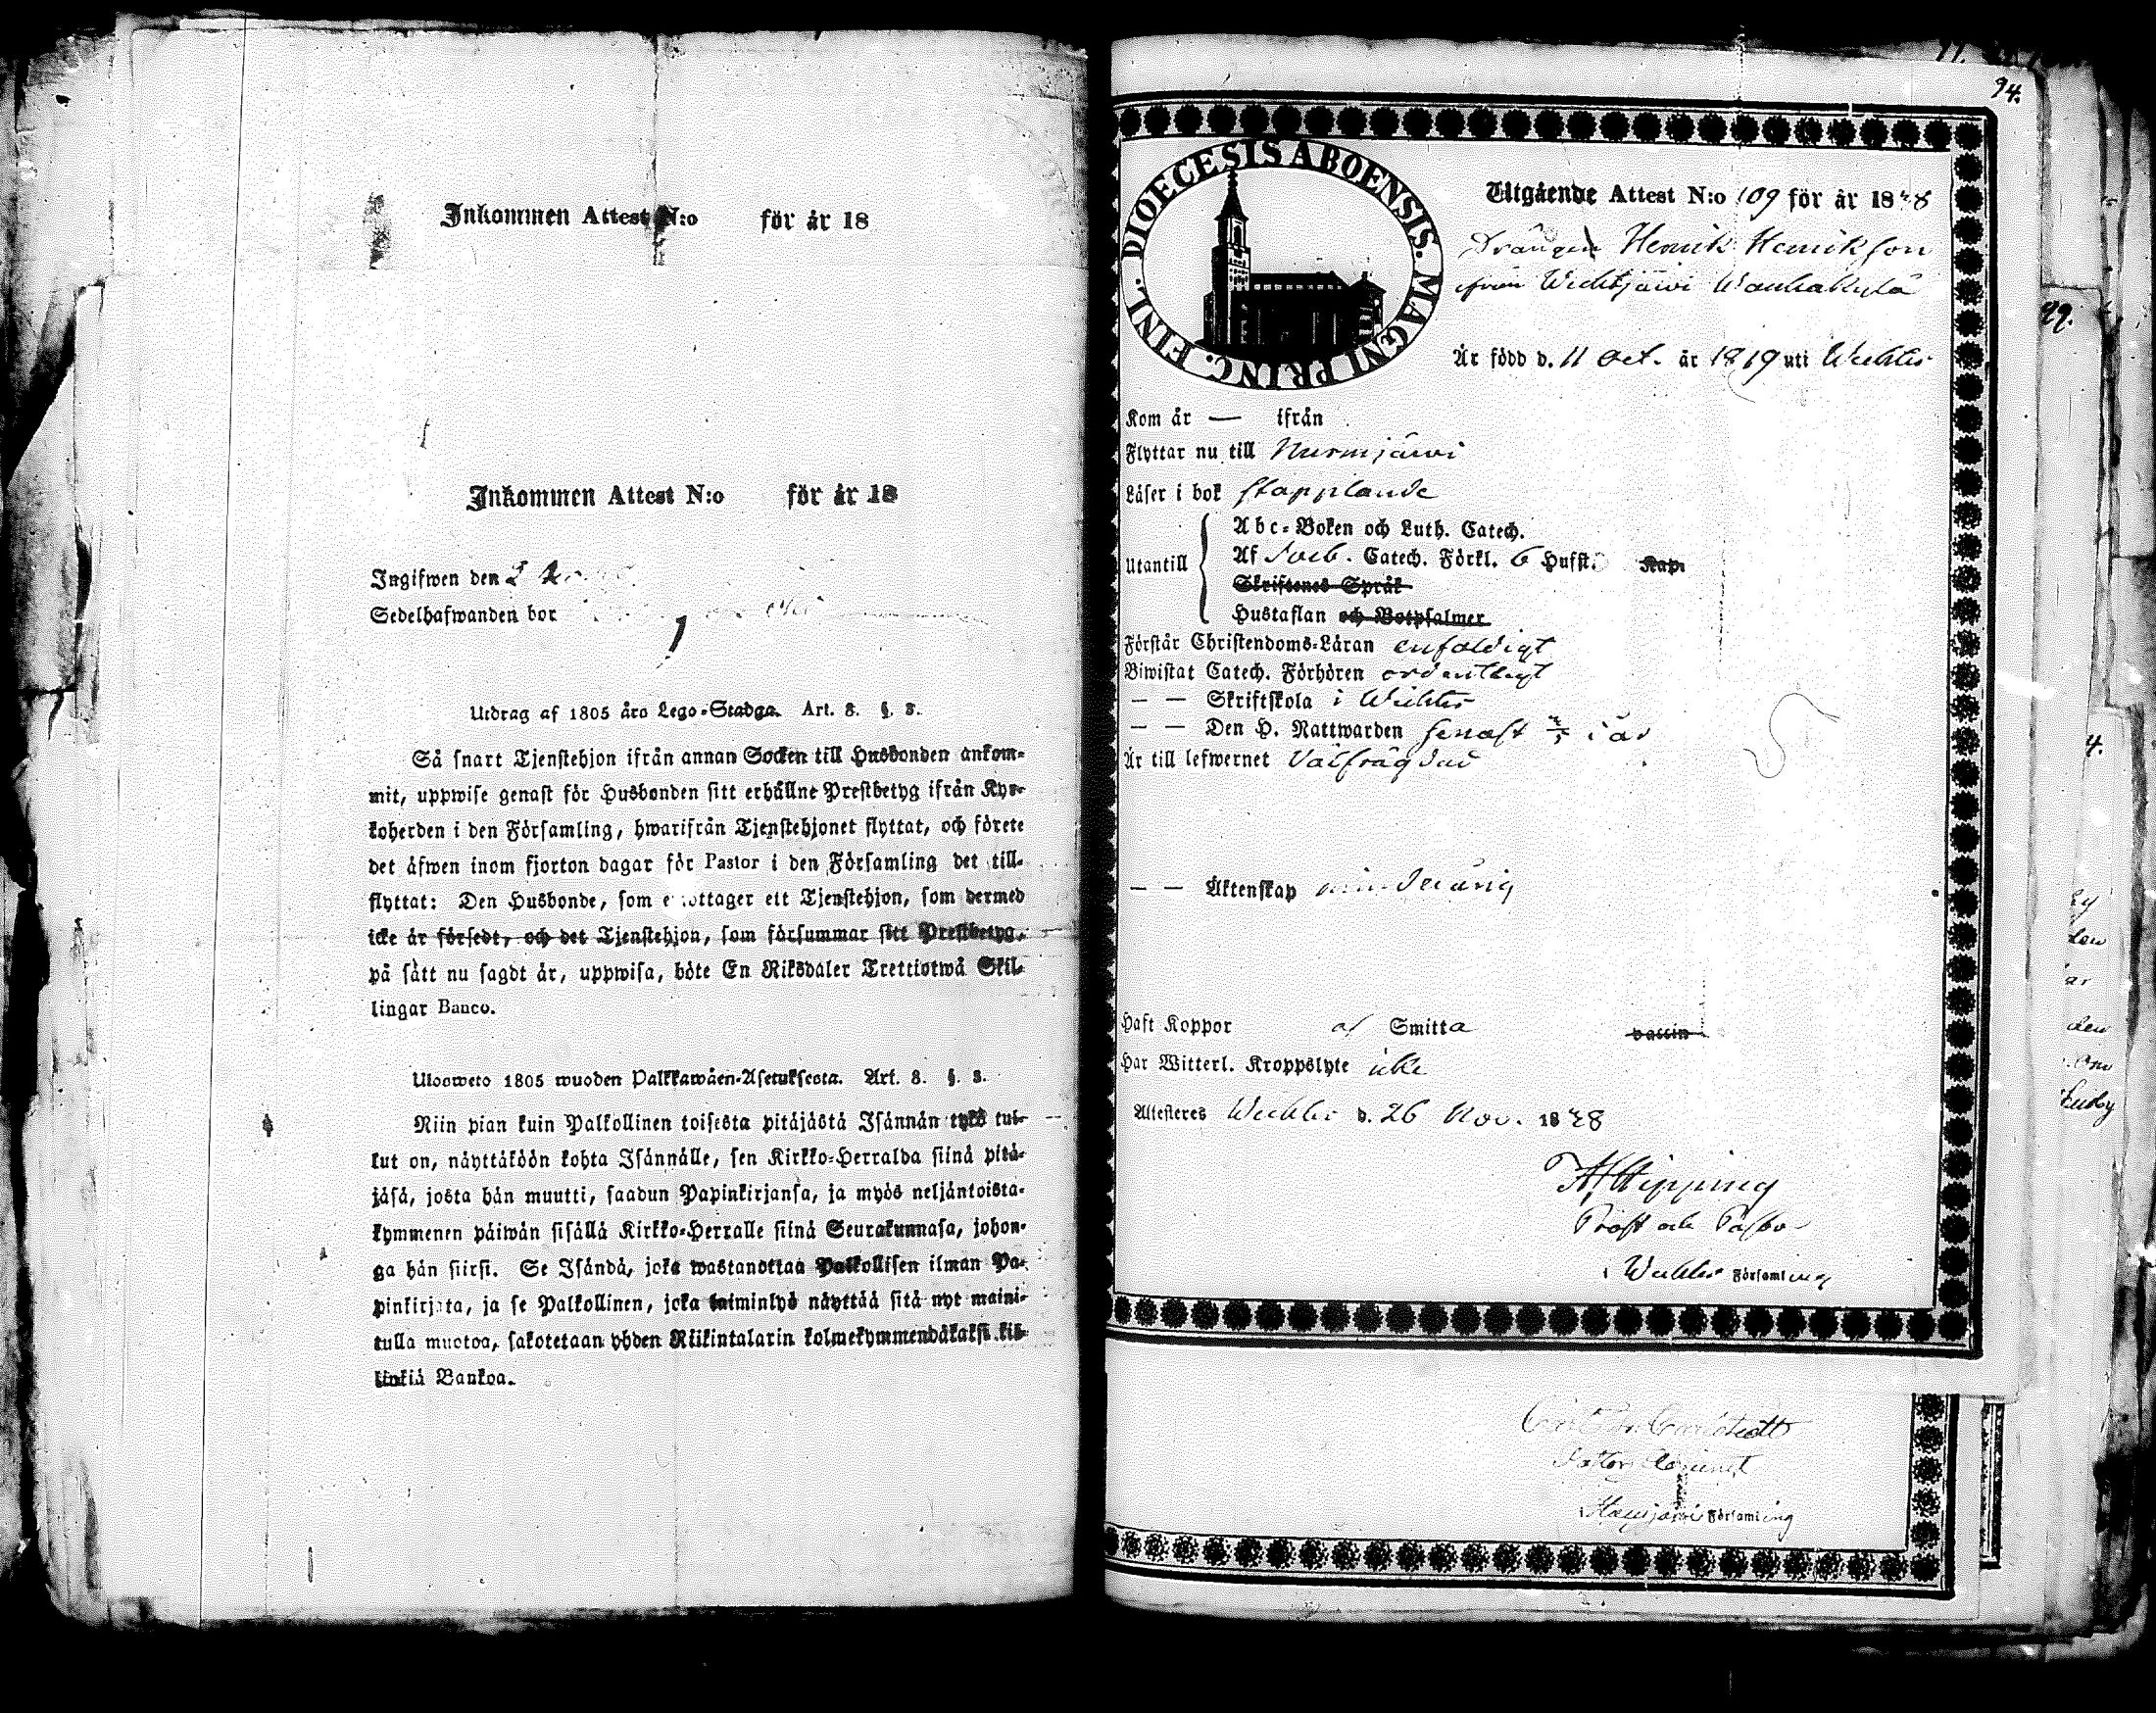 Inkommen Attest N:o för år 18
Inkommen Attest N:o för år 18
Ingifwen den 2
Sedelhafwanden bor
Utdrag af 1805 åro Lego-Stadga. Art. 8. §. 3.
Så snart Tjenstehjon ifrån annan Socken till Husbonden ankom-
mit, uppwise genast för Husbonden sitt erhållne Prestbetyg ifrån Kyr-
koherden i den Församling, hwarifrån Tjenstehjonet flyttat, och förete
det åfwen inom fjorton dagar för Pastor i den Församling det till-
flyttat: Den Husbonde, som emottager ett Tjenstehjon, som dermed
icke är försedt, och det Tjenstehjon, som försummar sitt Prestbetyg,
på sätt nu sagdt är, uppwisa, böte En Riksdaler Trettiotwå Skil-
lingar Banco.
Ulooweto 1805 wuoden Palkkawäen-Asetuksesta. Art. 8. §. 3.
Niin pian kuin Palkollinen toisesta pitäjästä Isännän tykö tul-
lut on, näyttäköön kohta Isännälle, sen Kirkko-Herralda siinä pitä-
jäsä, josta hän muutti, saadun Papinkirjansa, ja myös neljäntoista-
kymmenen päiwän sisällä Kirkko-Herralle siinä Seurakunnasa, johon-
ga hän siirsi. Se Isändä, joka wastanottaa Palkollisen ilman Pa-
pinkirjata, ja se Palkollinen, joka laiminlyö näyttää sitä nyt maini-
tulla muotoa, sakotetaan yhden Riikintalarin kolmekymmendäkaksi kil-
linkiä Bankoa.
94.
DIOECESIS ABOENSIS. MAGNI PRINC. FINL.
Utgående Attest N:o 109 för år 1848
Drängen Henrik Henriksson
ifrån Wichtjärvi Wanhakylä
Är född d. 11 Oct. år 1819 uti Wichtis
Kom år — ifrån
Flyttar nu till Nurmijärvi
Läser i bok stapplande
Utantill
Abc-Boken och Luth. Catech.
Af Sveb. Catech. Förkl. 6 Hufst. Kap.
Skriftenes Språk
Hustaflan och Botpsalmer
Förstår Christendoms-Läran enfaldigt
Biwistat Catech. Förhören ordentligt
— — Skriftskola i Wichtis
— — Den H. Nattwarden senast i år
Är till lefwernet Välfrägdad
— — Äktenskap minderårig
Haft Koppor af Smitta vaccin
Har Witterl. Kroppslyte icke
Attesteres Wichtis d. 26 Nov. 1848
Hipping
Prost och Pastor
i Wichtis Församling
Församling
29.
4.